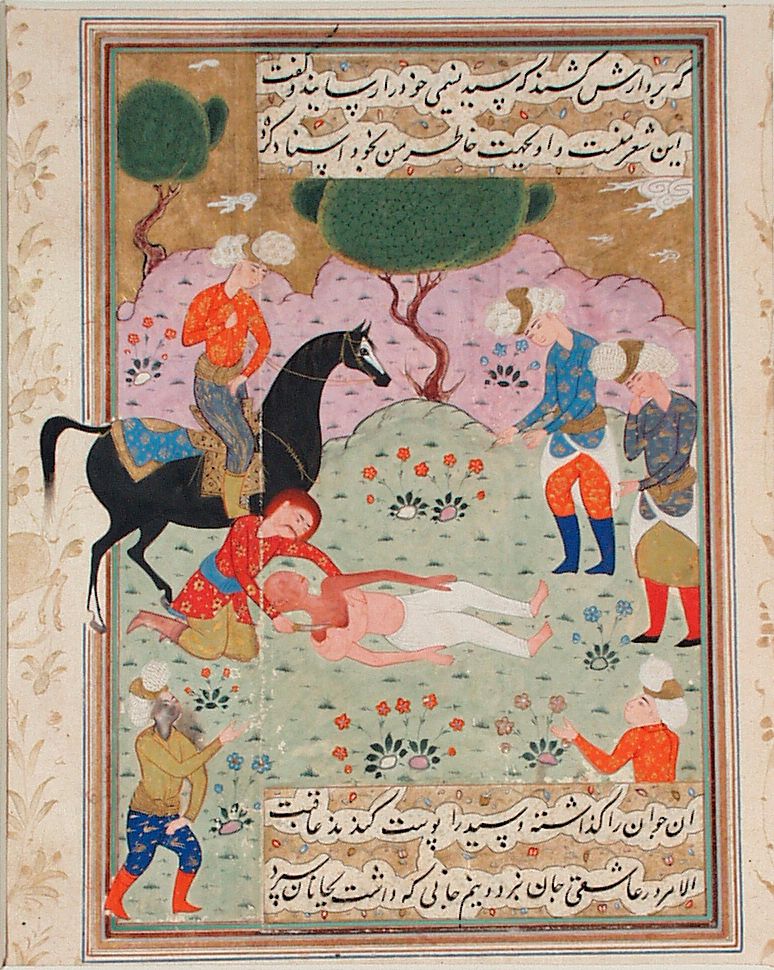 که بردارش کشند که سید نسیمی خود را رسانید و گفت
این شعر منست و او بجهت خاطر من بخود اسناد کرده
ان جوان را گذاشته و سید را پوست کندند عاقبت
الامر در عاشقی جان نبرد و نیم جانی که داشت بجانان سپرد